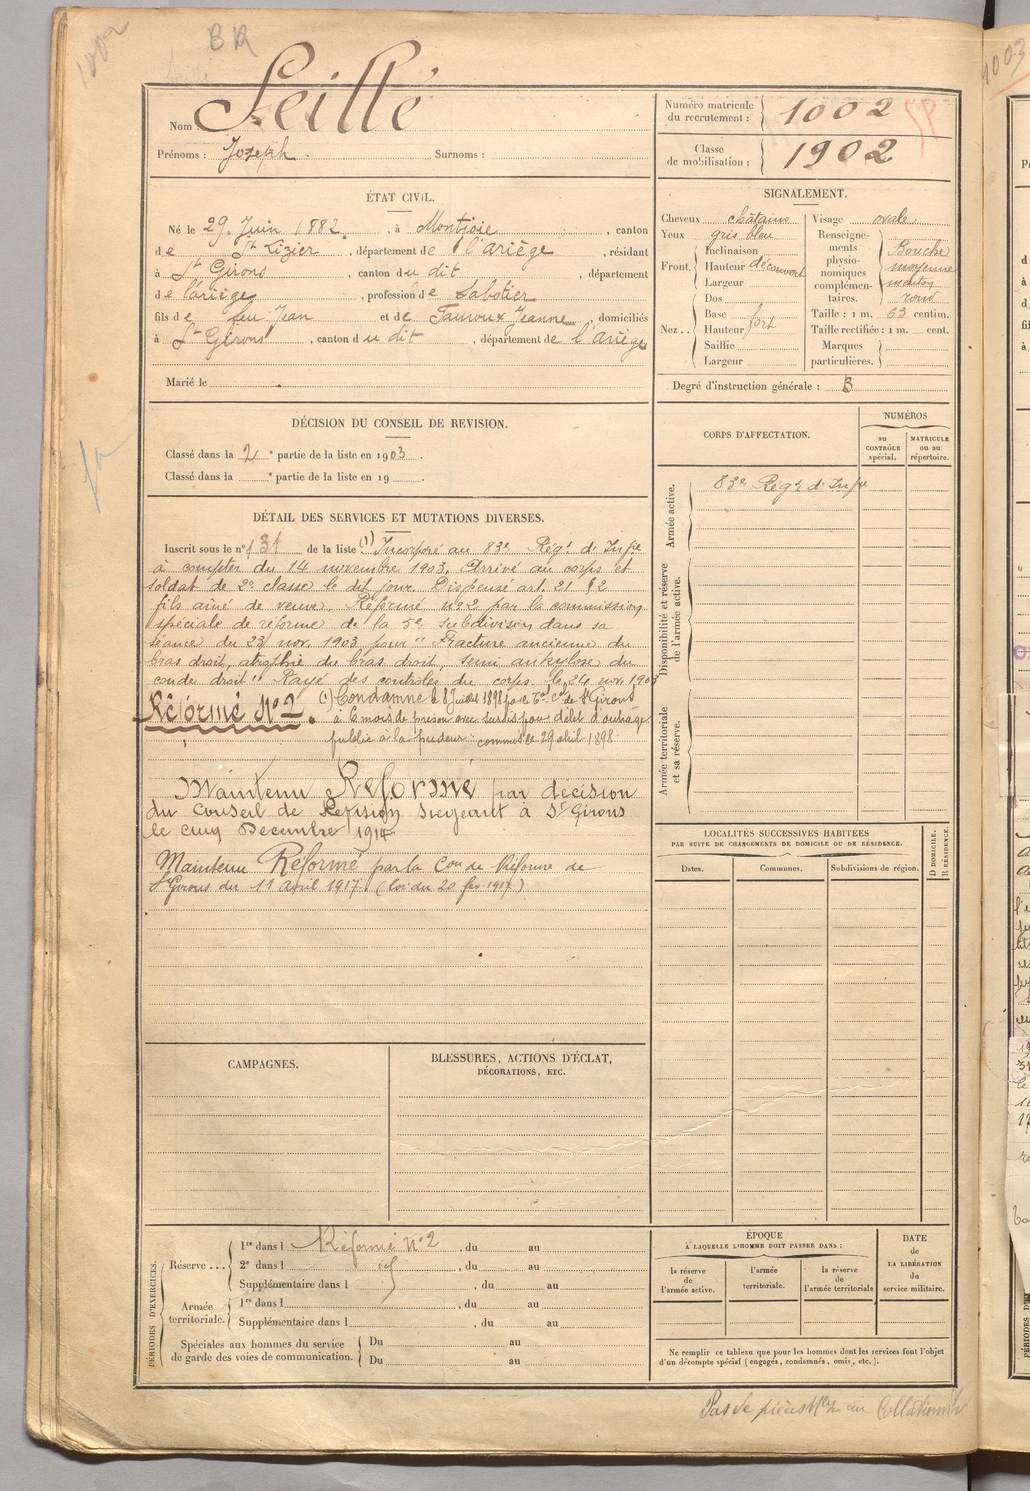 1002
BR
Seillé
Nom :
Prénoms : Joseph. Surnoms :
Numéro matricule du recrutement : 1002
Classe de mobilisation : 1902
ÉTAT CIVIL.
Né le 29 Juin 1882, à Montjoie, canton
de St Lizier, département de l'Ariège, résidant
à St Girons, canton du dit, département
de l'ariège, profession de Sabotier
fils de feu Jean et de Tauroux Jeanne, domiciliés
à St Girons, canton du dit, département de l'Ariège
Marié le
SIGNALEMENT.
Cheveux châtains
Yeux gris bleu
Front. Inclinaison
Hauteur découvert
Largeur
Nez. Dos
Base
Hauteur fort
Saillie
Largeur
Visage ovale
Renseignements physionomiques complémentaires. Bouche
moyenne
menton
rond
Taille : 1 m. 63 centim.
Taille rectifiée : 1 m. cent.
Marques particulières.
Degré d'instruction générale : 3
DÉCISION DU CONSEIL DE REVISION.
Classé dans la 2 e partie de la liste en 1903.
Classé dans la e partie de la liste en 19 .
DÉTAIL DES SERVICES ET MUTATIONS DIVERSES.
Inscrit sous le n° 131 de la liste (1) Incorporé au 83e Régt d'Infie
à compter du 14 novembre 1903. Arrivé au corps et
soldat de 2e classe le dit jour. Dispensé art. 21 § 2
fils ainé de veuve. Réformé n° 2 par la commission
spéciale de réforme de la 5e subdivision dans sa
séance du 23 nov. 1903 pour "Fracture ancienne du
bras droit, atrophie du bras droit, semi ankylose du
coude droit". Rayé des contrôles du corps le 24 nov. 1903
Réformé N° 2.
(1) Condamné le 8 Juillet 1898 par le Tal Cel de St Girons
à 6 mois de prison avec sursis pour délit d'outrage
public à la pudeur commis le 29 avril 1898.
Maintenu Réformé par décision
du Conseil de Révision siégeant à St Girons
le cinq Décembre 1914
Maintenu Réformé par la Con de Réforme de
St Girons du 11 avril 1917. (loi du 20 fev. 1917)
CORPS D'AFFECTATION.
NUMÉROS
au CONTRÔLE spécial.
MATRICULE ou au répertoire.
Armée active.
83e Régt d'Infie
Disponibilité et réserve de l'armée active.
Armée territoriale et sa réserve.
LOCALITÉS SUCCESSIVES HABITÉES
PAR SUITE DE CHANGEMENTS DE DOMICILE OU DE RÉSIDENCE.
Dates. Communes. Subdivisions de région.
D DOMICILE. R RÉSIDENCE.
CAMPAGNES.
BLESSURES, ACTIONS D'ÉCLAT,
DÉCORATIONS, ETC.
PÉRIODES D'EXERCICES.
Réserve ... 1re dans l Réformé n° 2, du au
2e dans l , du au
Supplémentaire dans l , du au
Armée territoriale. 1re dans l , du au
Supplémentaire dans l , du au
Spéciales aux hommes du service
de garde des voies de communication. Du au
Du au
ÉPOQUE
À LAQUELLE L'HOMME DOIT PASSER DANS :
la réserve de l'armée active.
l'armée territoriale.
la réserve de l'armée territoriale
DATE de LA LIBÉRATION du service militaire.
Ne remplir ce tableau que pour les hommes dont les services font l'objet
d'un décompte spécial (engagés, condamnés, omis, etc.).
Pas de pièces